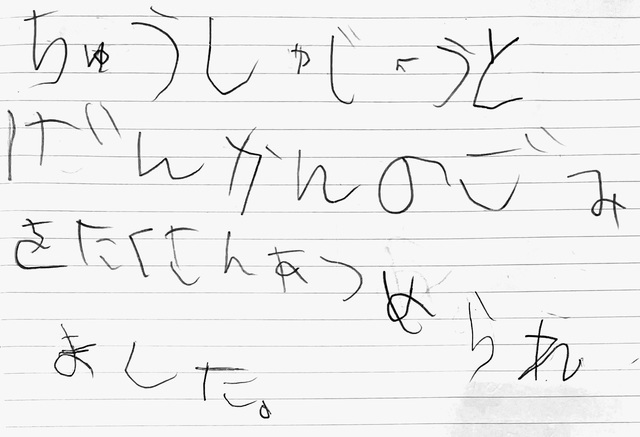 ちゅうしゃじょうと
げんかんのごみ
をたくさんあつめられ
ました。